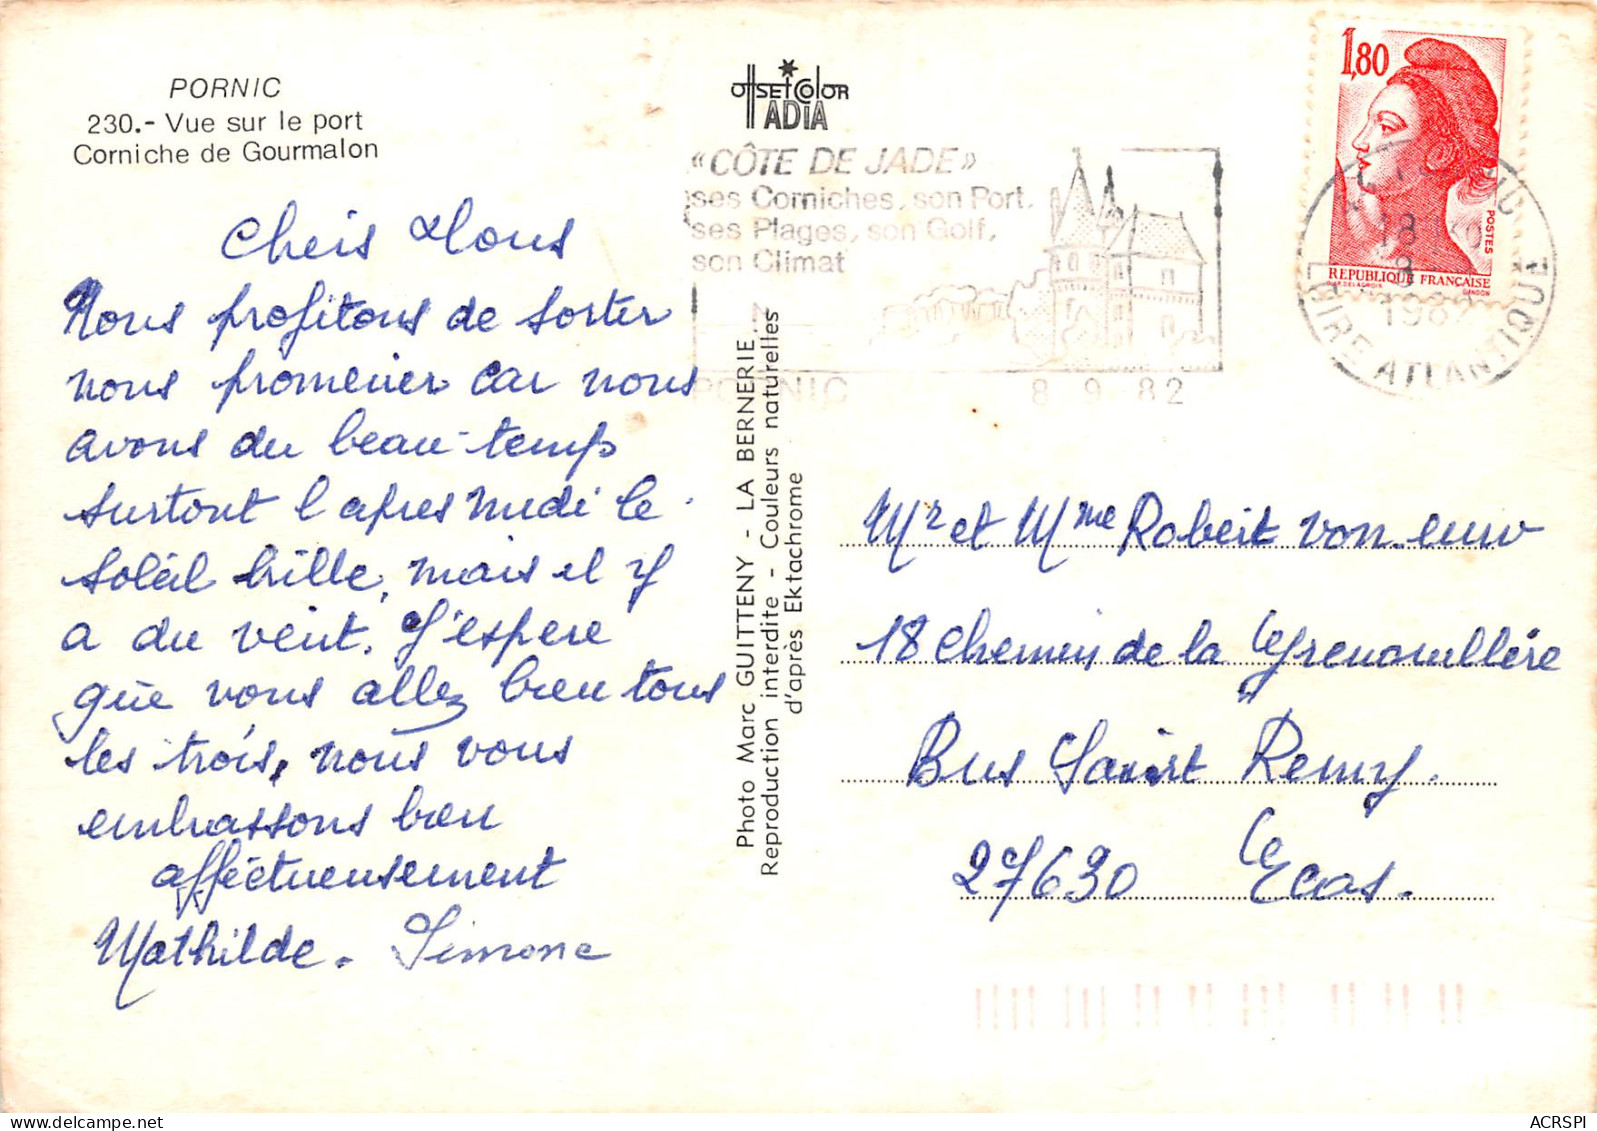 PORNIC
230.- Vue sur le port
Corniche de Gourmalon
Cheis Vous
Nous profitons de sortir
nous promener car nous
avons du beau-temps
surtout l'apres midi le
soleil brille, mais il y
a du vent. J'espere
que vous allez bien tous
les trois, nous vous
embrassons bien
affectueusement
Mathilde. Simone
OffSEt COlOR
ADIA
«CÔTE DE JADE»
ses Corniches, son Port,
ses Plages, son Golf,
son Climat
PORNIC 8 9 82
Photo Marc GUITTENY - LA BERNERIE...
Reproduction interdite - Couleurs naturelles
d'après Ektachrome
1,80
POSTES
REPUBLIQUE FRANCAISE
GANDON
18
8 9
1982
LOIRE ATLANTIQUE
Mr et Mme Robert
18 chemin de la Grenouillère
Bus Saint Remy.
27630 Ecos.
ACRSPI